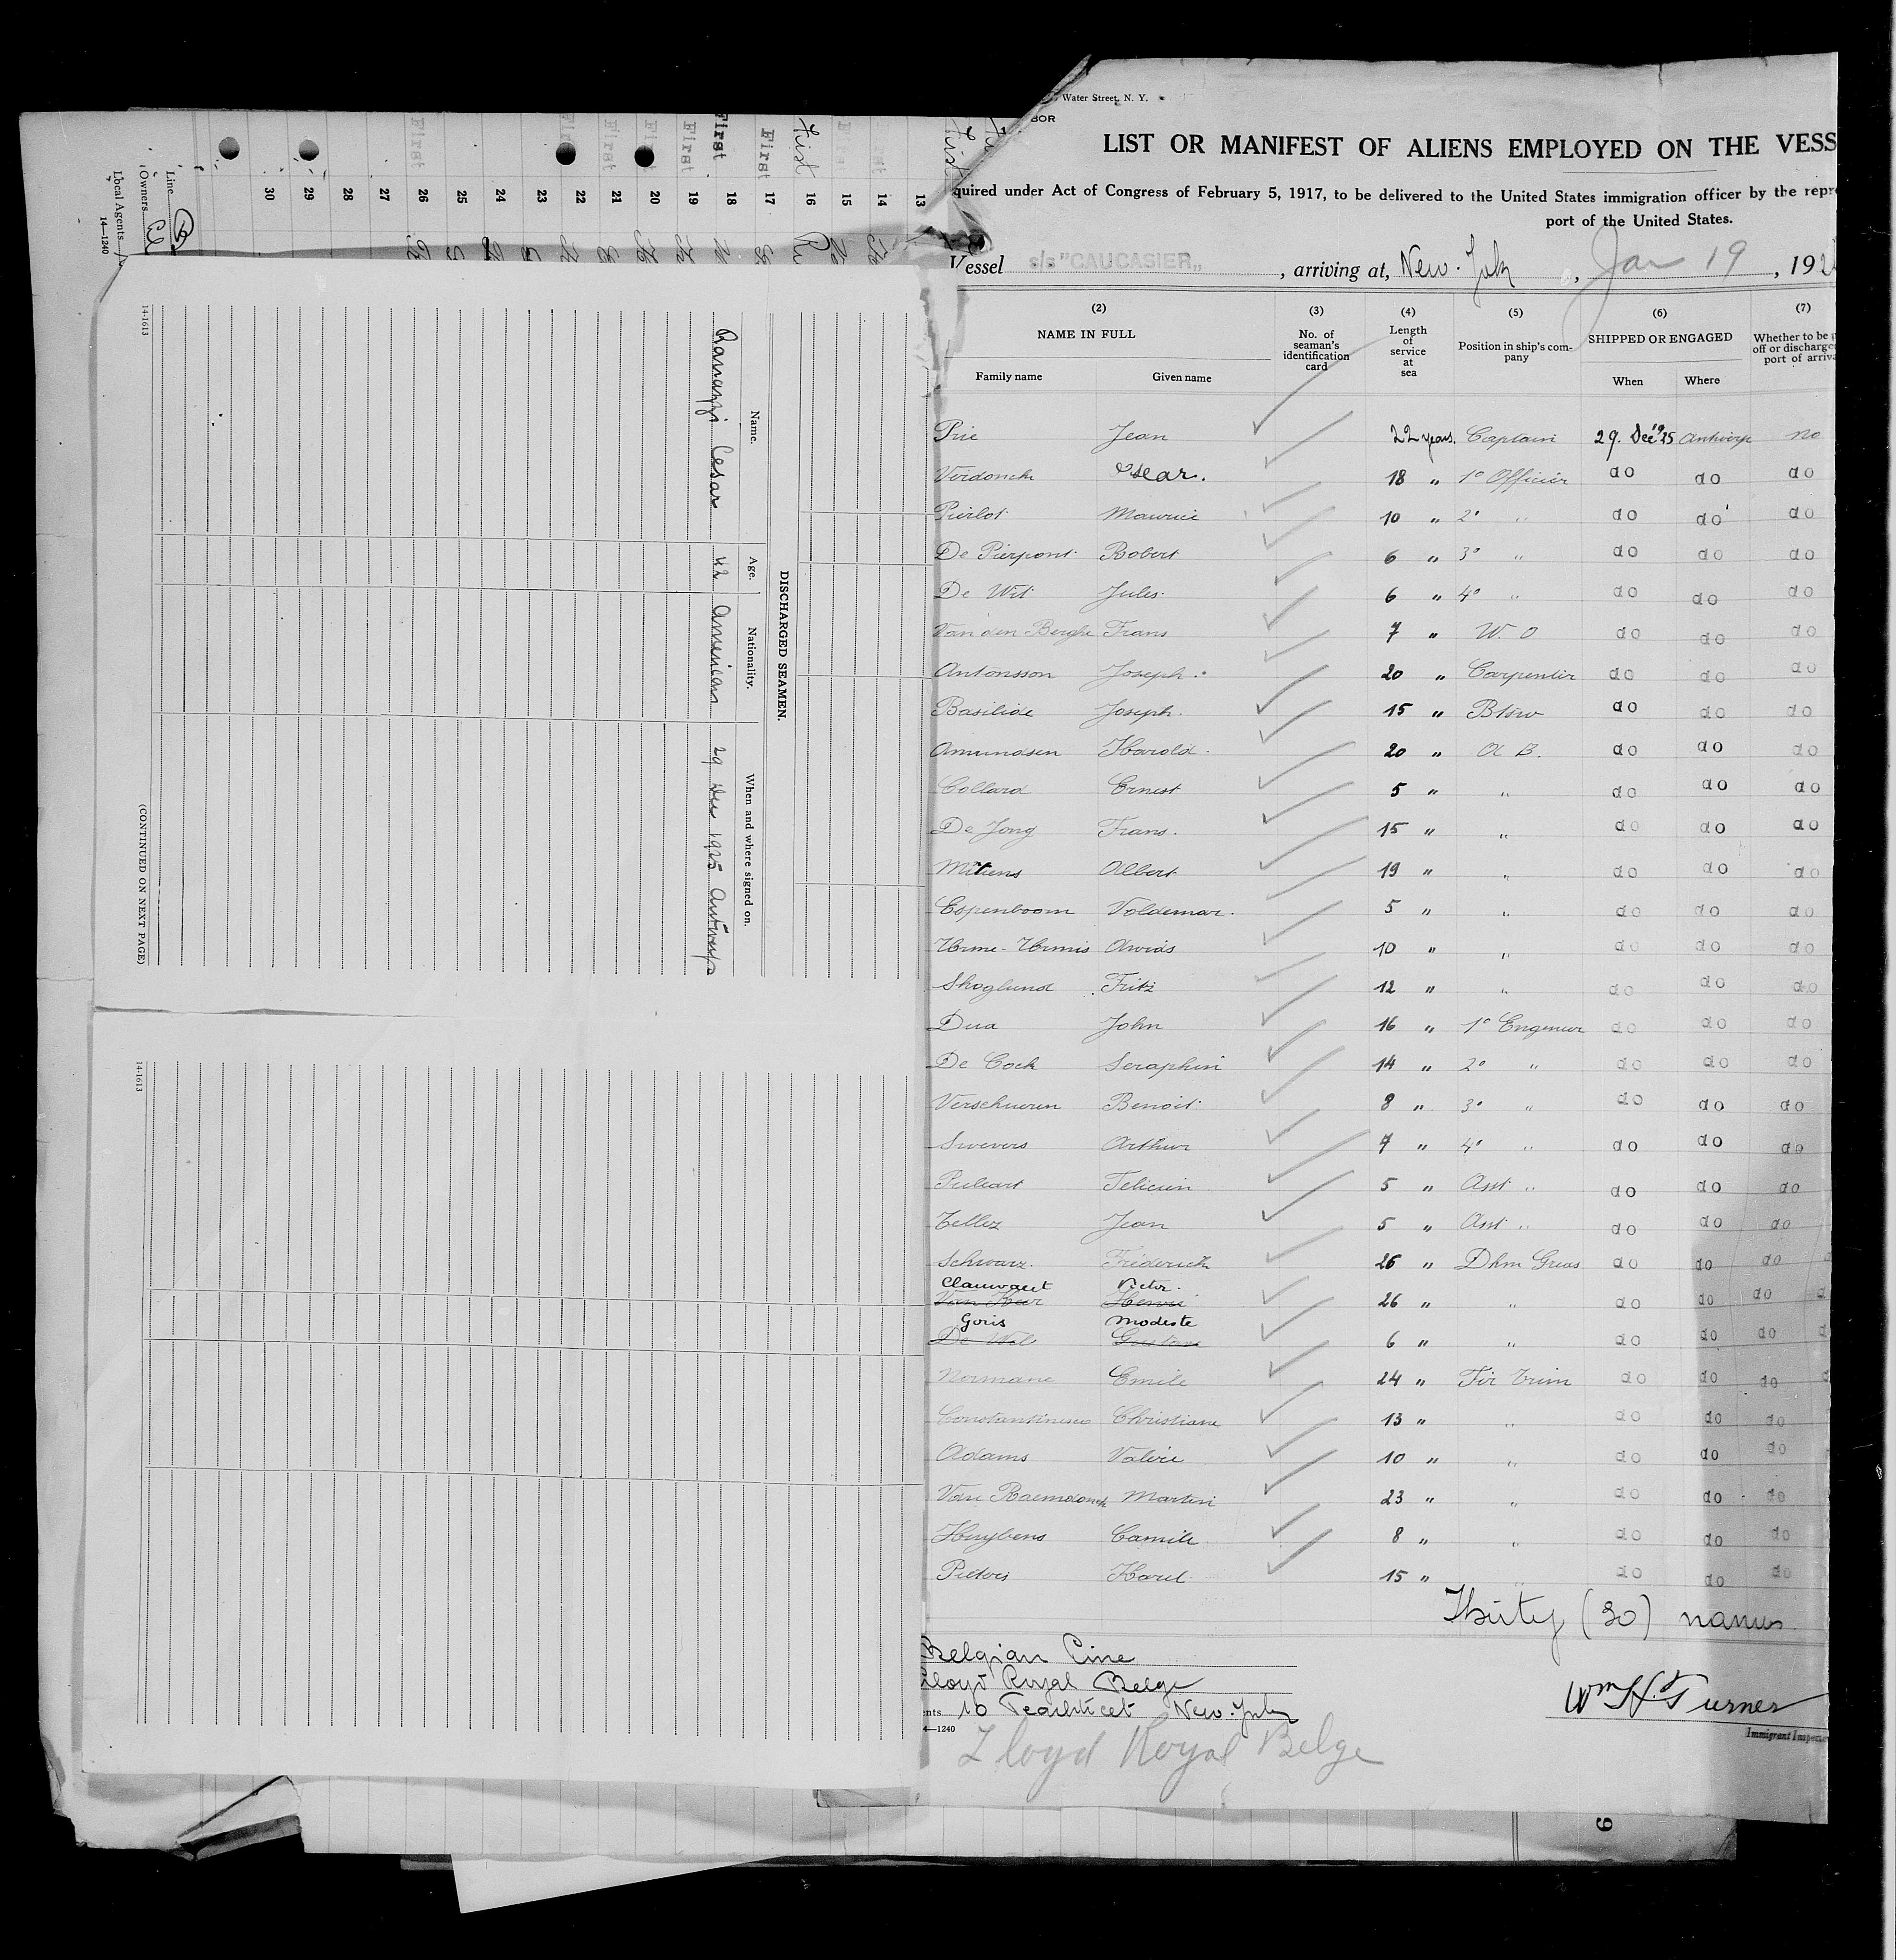 Water Street, N. Y.
BOR
LIST OR MANIFEST OF ALIENS EMPLOYED ON THE VESS
quired under Act of Congress of February 5, 1917, to be delivered to the United States immigration officer by the repre
port of the United States.
Vessel s/s "CAUCASIER", arriving at, New-York, Jan 19, 192
(2) (3) (4) (5) (6) (7)
NAME IN FULL No. of seaman's identification card Length of service at sea Position in ship's company SHIPPED OR ENGAGED Whether to be p
off or discharge
port of arriva
Family name Given name When Where
Prie Jean 22 years. Captain 29. Dec 1925 Antwerp no
Verdonck Oscar. 18 " 1º Officier do do do
Pierlot Maurice 10 " 2º " do do do
De Pierpont Robert 6 " 3º " do do do
De Wit Jules 6 " 4º " do do do
Van den Berghe Frans 7 " W. O do do do
Antonsson Joseph. 20 " Carpentier do do do
Basilide Joseph. 15 " Btsw do do do
Amundsen Harold. 20 " A B. do do do
Collard Ernest 5 " " do do do
De Jong Frans. 15 " " do do do
Mitiens Albert 19 " " do do do
Espenboom Voldemar. 5 " " do do do
Urme-Urmis Arvids 10 " " do do do
Skoglund Fritz 12 " " do do do
Dua John 16 " 1º Engenier do do do
De Cock Seraphin 14 " 2º " do do do
Verschueren Benoit 8 " 3º " do do do
Swevers Arthur 7 " 4º " do do do
Felicien 5 " Asst " do do do
Tellez Jean 5 " Asst " do do do
Schwarz. Friderich 26 " Dkm Greas do do do
Clauwaert Victor.
Van Heer Henri 26 " " do do do
Goris Modeste
De Wel Gustave 6 " " do do do
Normane Emile 24 " Fir Trim do do do
Constantinesco Christiane 13 " " do do do
Adams Valère 10 " " do do do
Van Raemdonck Martin 23 " " do do do
Huybens Camille 8 " " do do do
Pieters Karel 15 " " do do do
Thirty (30) names
Belgian Line
Lloyd Royal Belge
ents 10 Pearlstreet New-York
4—1240
Lloyd Royal Belge
Wm H. Turner
Immigrant Inspector
DISCHARGED SEAMEN.
Name. Age. Nationality. When and where signed on.
Ramazzi Cesar 42 American 29 Dec 1925 Antwerp
14-1613
(CONTINUED ON NEXT PAGE)
14-1613
13
14 First
15 F
16 First
17 First
18 First
19 First
20 First
21 First
22 First
23
24
25
26 First
27
28
29
30
Line
Owners
Local Agents
14—1240
9